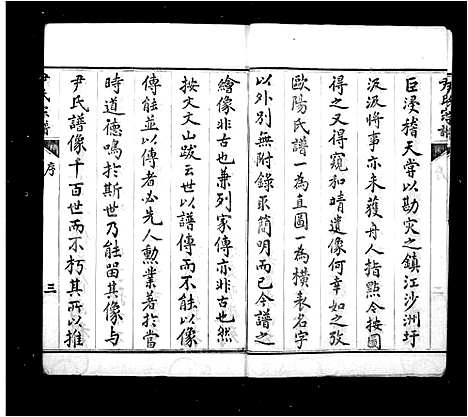 尹氏宗譜
序
二
巨浸稽天嘗以勘灾之鎮江沙洲圩
汲汲將事亦未獲舟人指點今按圖
得之又得窺和晴遺像何幸如之攷
歐陽氏譜一為直圖一為橫表名字
以外別無附錄衹簡明而已今譜之
繪像非古也兼列家傳亦非古也然
按文文山跋云世以譜傳而不能以像
傳能並以傳者必先人勲業著於當
時道德鳴於斯世乃能留其像与
尹氏譜像千百世而不朽其所以推
尹氏宗譜
序
三